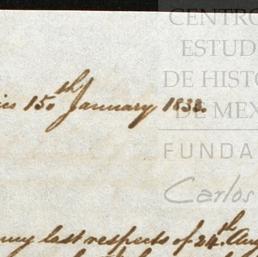 CENTRO
ESTUD
DE HISTO
DE MEX
FUNDA
Carlos
15th January 1838.
my last respects of 24th Aug